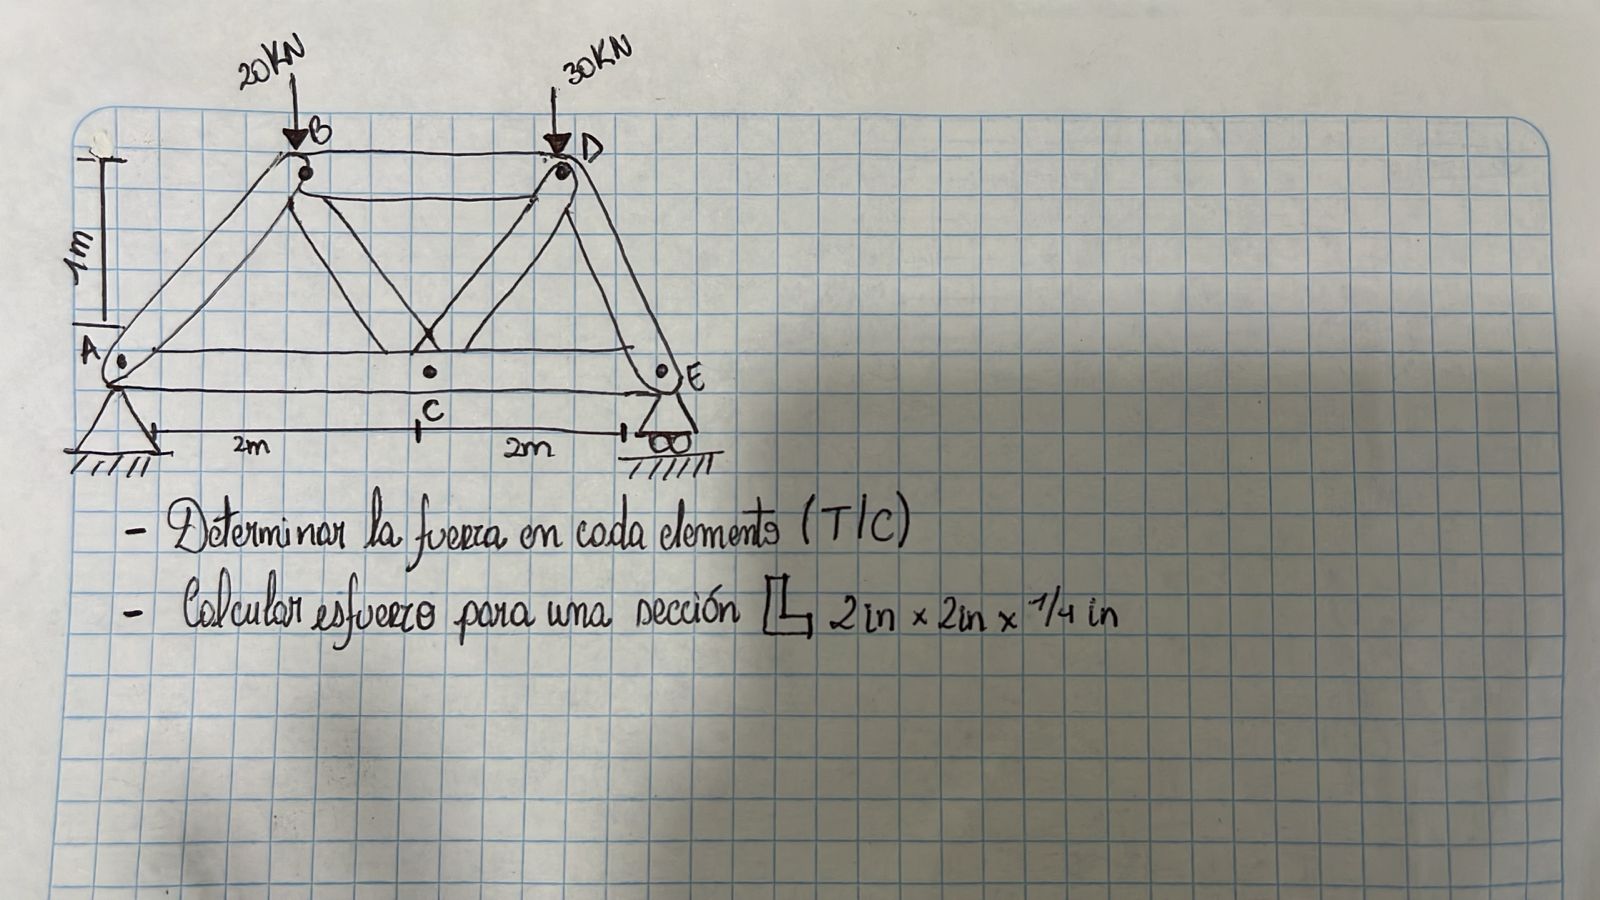 20KN
30KN
B
D
1m
A
E
C
2m
2m
- Determinar la fuerza en cada elemento (T/C)
- Calcular esfuerzo para una sección L 2in x 2in x 1/4 in